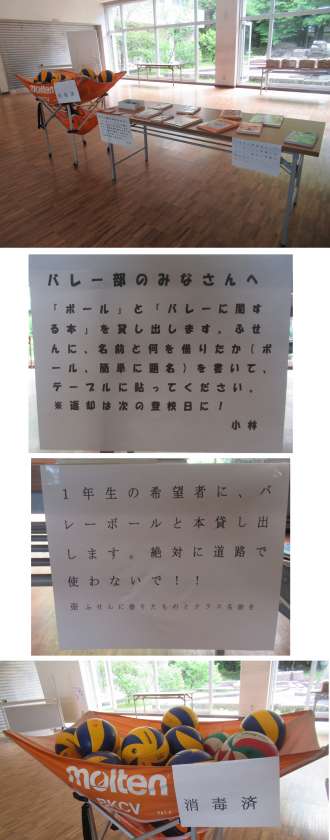 molten
消毒済
バレー部のみなさんへ
「ボール」と「バレーに関す
る本」を貸し出します。ふせ
んに、名前と何を借りたか（ボ
ール、簡単に題名）を書いて、
テーブルに貼ってください。
※返却は次の登校日に！
小林
1年生の希望者に、バ
レーボールと本貸し出
します。絶対に道路で
使わないで！！
※ふせんに借りたものとクラス名前を
molten
消毒済